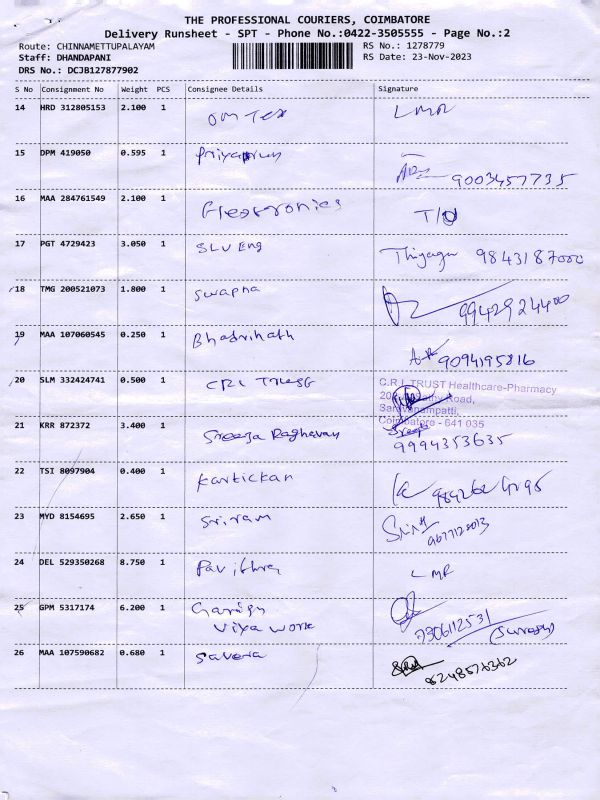 THE PROFESSIONAL COURIERS, COIMBATORE
Delivery Runsheet - SPT - Phone No.:0422-3505555 - Page No.:2
Route: CHINNAMETTUPALAYAM RS No.: 1278779
Staff: DHANDAPANI RS Date: 23-Nov-2023
DRS No.: DCJB127877902
S No Consignment No Weight PCS Consignee Details Signature
14 HRD 312805153 2.100 1 OM Tex LMR
15 DPM 419050 0.595 1 9003457735
16 MAA 284761549 2.100 1 Electronics
17 PGT 4729423 3.050 1 SLV Eng Thiyagu 9843187000
18 TMG 200521073 1.800 1 Swapna 9942924400
19 MAA 107060545 0.250 1 Bhadrinath 9094195816
20 SLM 332424741 0.500 1 CRI
C.R.I. TRUST Healthcare-Pharmacy
Road,
Saravanampatti,
Coimbatore - 641 035
21 KRR 872372 3.400 1 Sreeja Raghavan Sreeja
9994353635
22 TSI 8097904 0.400 1 Kartickan
23 MYD 8154695 2.650 1 Sriram
24 DEL 529350268 8.750 1 Pavithra LMR
25 GPM 5317174 6.200 1
7306112531
26 MAA 107590682 0.680 1 Savera